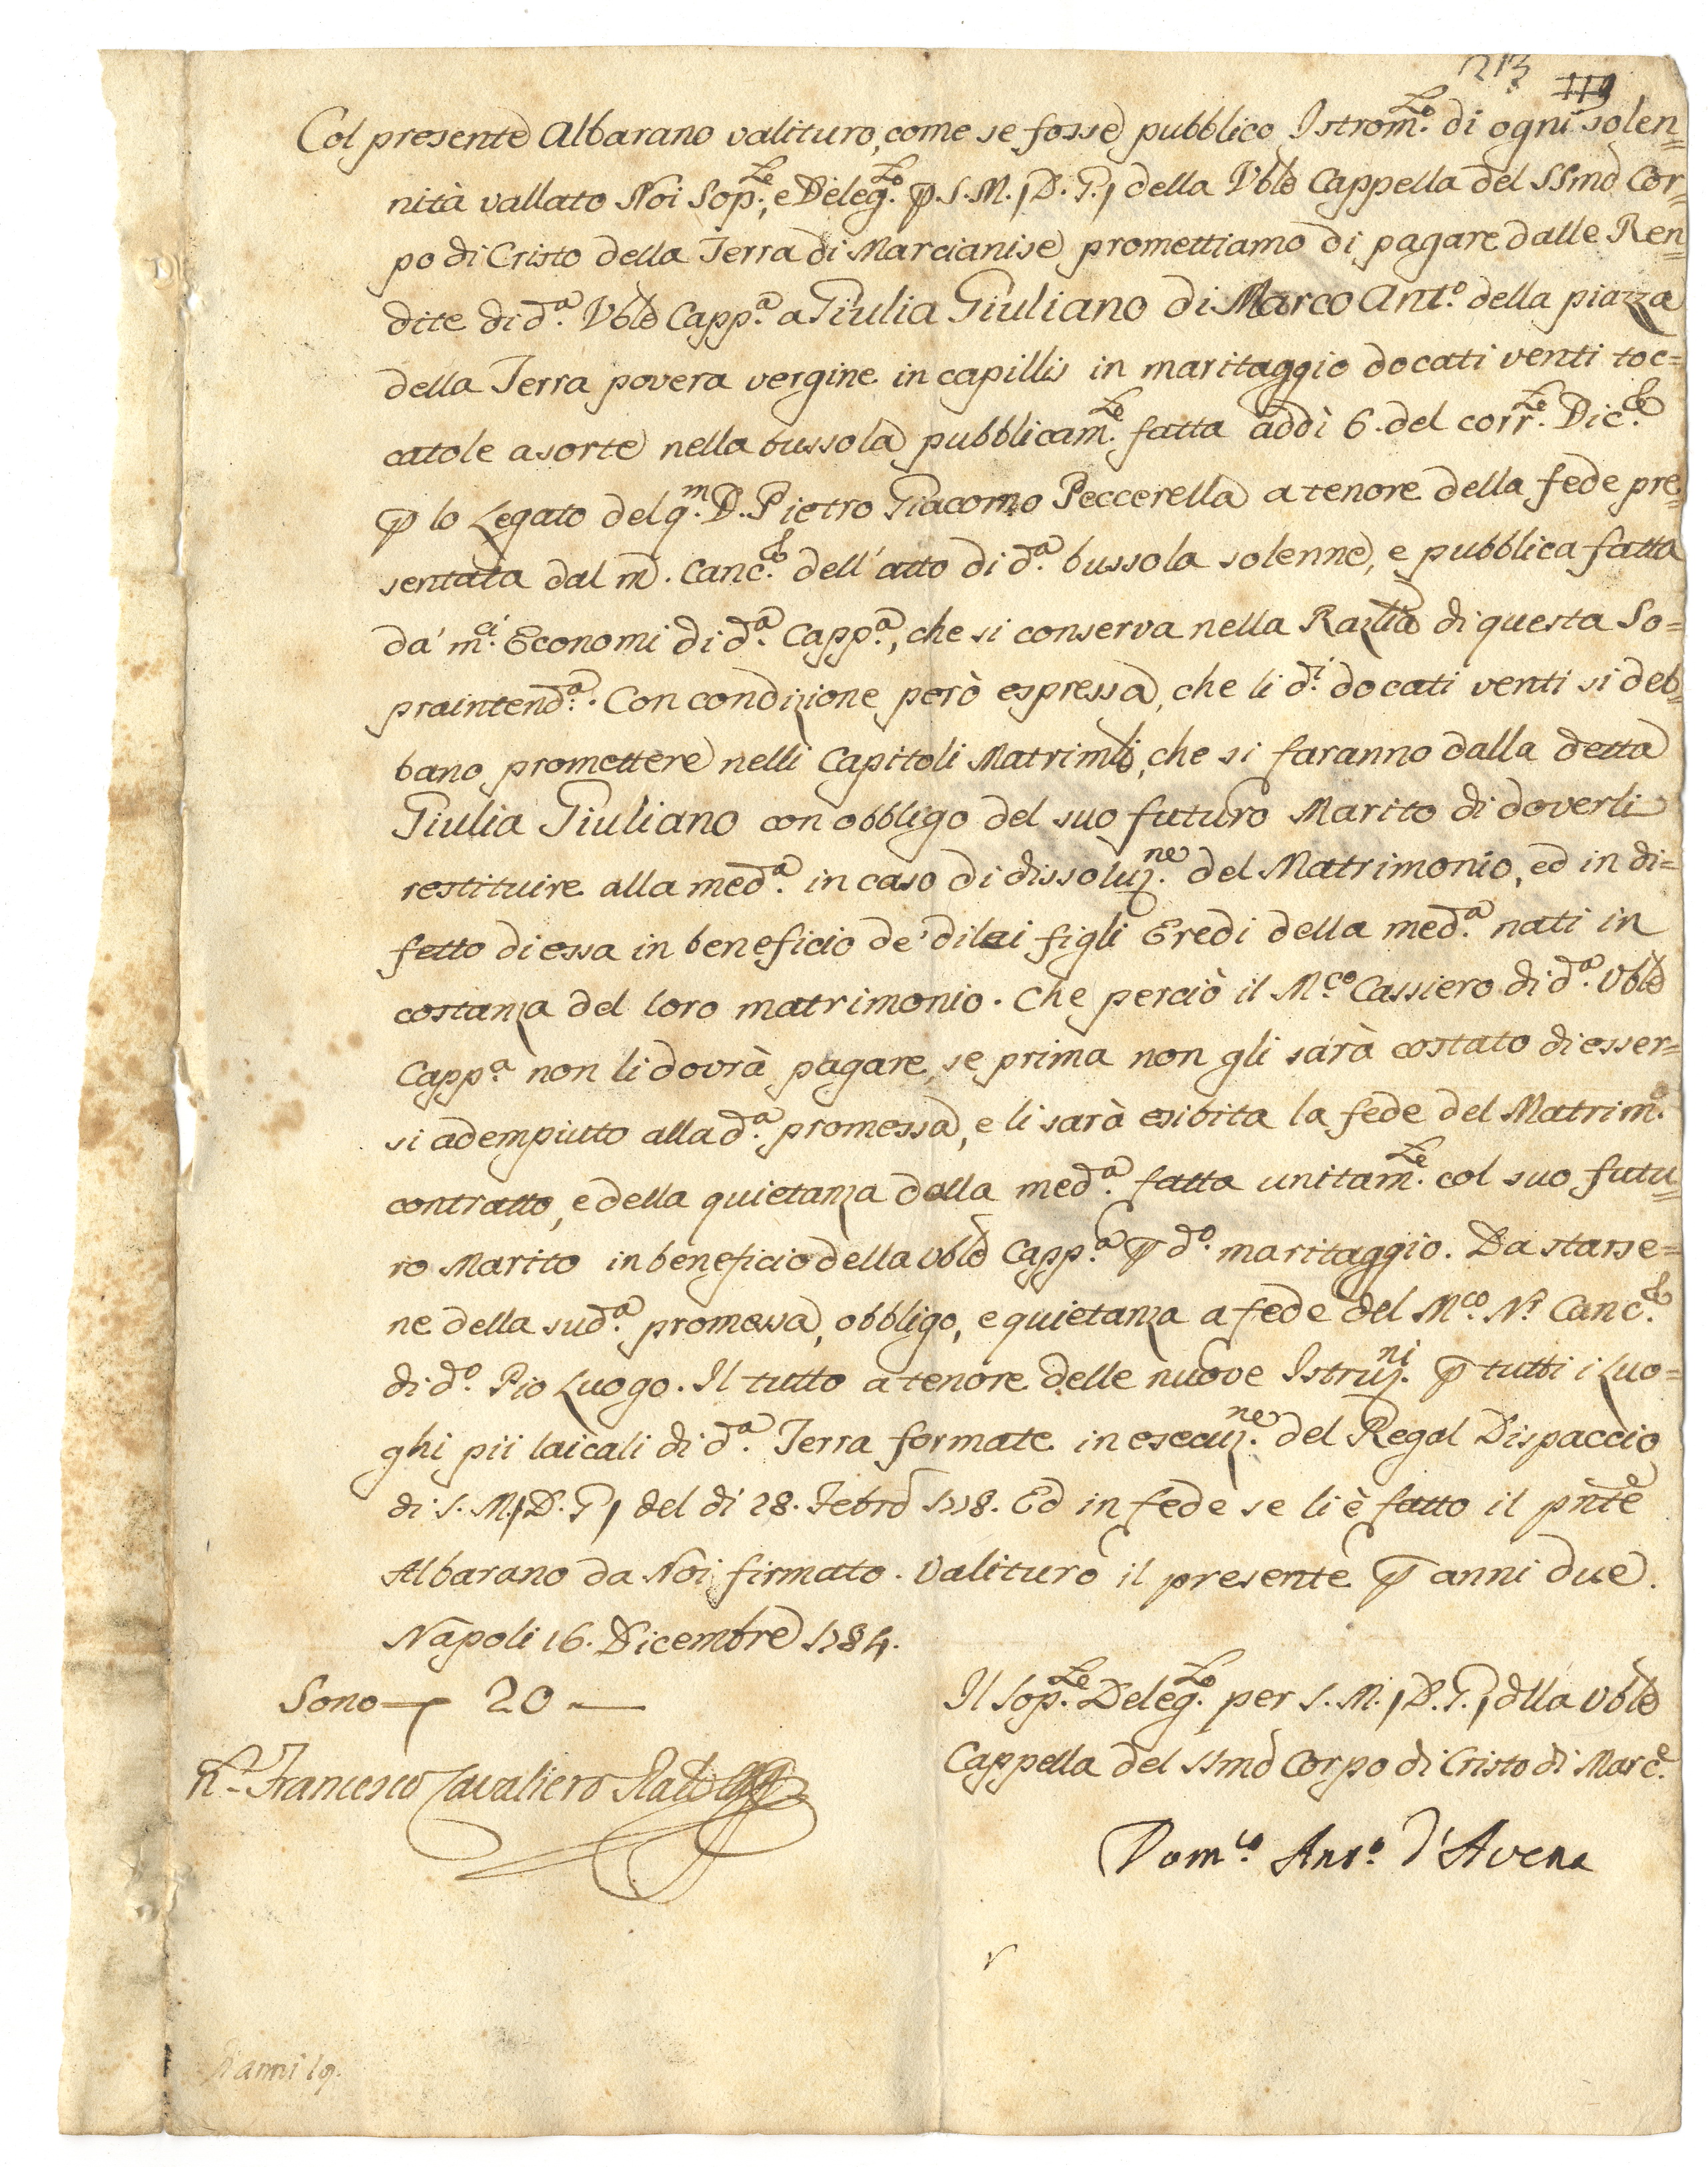 213 119
Col presente Albarano valituro, come se fosse pubblico Istrom.to di ogni solen=
nità vallato Noi Sop.te, e Deleg.to p. S. M. (D. G.) della Vble Cappella del SSmo Cor=
po di Cristo della Terra di Marcianise promettiamo di pagare dalle Ren=
dite di d.a Vble Capp.a a Giulia Giuliano di Marco Ant.o della piazza
della Terra povera vergine in capillis in maritaggio docati venti toc=
catole a sorte nella bussola pubblicam.te fatta addì 6. del corr.te Dic.e
p lo Legato del q.m D. Pietro Giacomo Peccerella a tenore della fede pre=
sentata dal m. Canc.e dell'atto di d.a bussola solenne, e pubblica fatta
da' m.ci Economi di d.a Capp.a, che si conserva nella Razlia di questa So=
praintend.a. Con condizione però espressa, che li d.i docati venti si deb=
bano promettere nelli Capitoli Matrimli, che si faranno dalla detta
Giulia Giuliano con obbligo del suo futuro Marito di doverli
restituire alla med.a in caso di dissoluz.ne del Matrimonio, ed in di=
fetto di essa in beneficio de' di lei figli Eredi della med.a nati in
costanza del loro matrimonio. Che perciò il M.co Cassiero di d.a Vble
Capp.a non li dovrà pagare, se prima non gli sarà costato di esser=
si adempiuto alla d.a promessa, e li sarà esibita la fede del Matrim.o
contratto, e della quietanza dalla med.a fatta unitam.te col suo futu=
ro Marito in beneficio della Vble Capp.a p d.o maritaggio. Da starse=
ne della sud.a promessa, obbligo, e quietanza a fede del M.co N.r Canc.e
di d.o Pio Luogo. Il tutto a tenore delle nuove Istruz.ni p tutti i Luo=
ghi pii laicali di d.a Terra formate in esecuz.ne del Regal Dispaccio
di S. M. (D. G.) del dì 28. Febro 1778. Ed in fede se li è fatto il pnte
Albarano da Noi firmato. Valituro il presente p anni due.
Napoli 16. Dicembre 1784.
Sono — 20 —
Il Sop.te Deleg.to per S. M. (D. G.) dlla Vble
N.r Francesco Cavaliero
Cappella del SSmo Corpo di Cristo di Marc.e
Dom.co Ant.o d'Avena
anni 19.